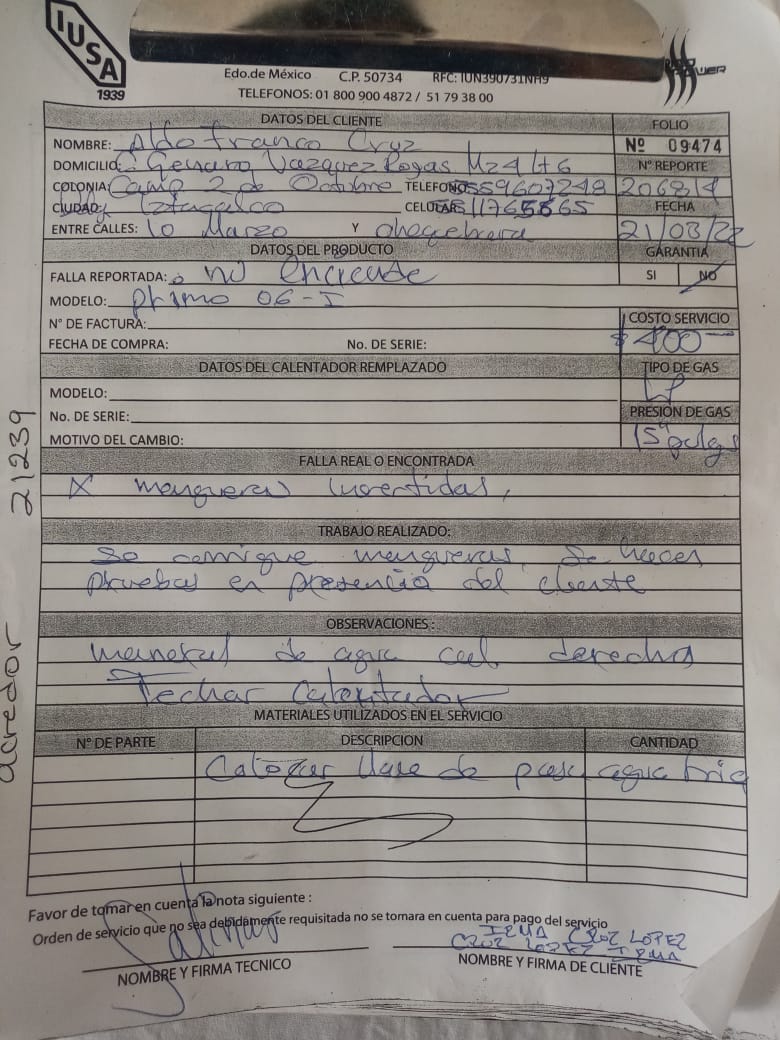 IUSA
1939
Edo.de México C.P. 50734 RFC: IUN390731NH9
TELEFONOS: 01 800 900 4872 / 51 79 38 00
DATOS DEL CLIENTE
FOLIO
NOMBRE: Aldo Franco Cruz
Nº 09474
DOMICILIO: Genaro Vazquez Rogas Mz4 Lt6
N° REPORTE
COLONIA: Camp 2 de Octubre TELEFONO: 5596072
206814
CIUDAD: Iztacalco CELULAR:
FECHA
ENTRE CALLES: 10 Marzo Y
21/03/22
DATOS DEL PRODUCTO
GARANTIA
FALLA REPORTADA: no enciende
SI NO
MODELO: primo 06-I
N° DE FACTURA:
COSTO SERVICIO
FECHA DE COMPRA: No. DE SERIE:
$ 400
DATOS DEL CALENTADOR REMPLAZADO
TIPO DE GAS
MODELO:
LP
No. DE SERIE:
PRESIÓN DE GAS
MOTIVO DEL CAMBIO:
15" pulgs
FALLA REAL O ENCONTRADA
X mangueras invertidas,
TRABAJO REALIZADO:
Se corrigue mangueras, Se hacen
pruebas en presencia del cliente
OBSERVACIONES :
maneral de agua derecho
Techar Calentador
MATERIALES UTILIZADOS EN EL SERVICIO
N° DE PARTE DESCRIPCION CANTIDAD
Colocar llave de paso agua fria
Favor de tomar en cuenta la nota siguiente :
Orden de servicio que no sea debidamente requisitada no se tomara en cuenta para pago del servicio
Salinas
IRMA CRUZ LOPEZ
CRUZ LOPEZ IRMA
NOMBRE Y FIRMA TECNICO
NOMBRE Y FIRMA DE CLIENTE
acredor 21239